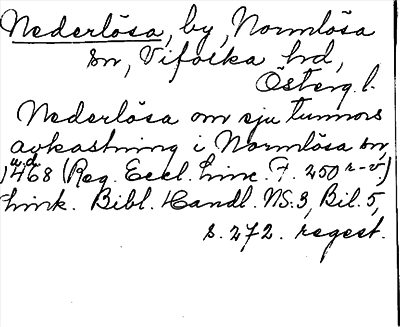 Nederlösa, by, Normlösa
sn, Vifolka hd,
Österg. l.
Nederlösa om sju tunnors
avkastning i Normlösa sn,
u.d.
1468 (Reg. Eccl. Linc. F. 250 r-v)
Link. Bibl. Handl. NS. 3, Bil. 5,
s. 272. regest.